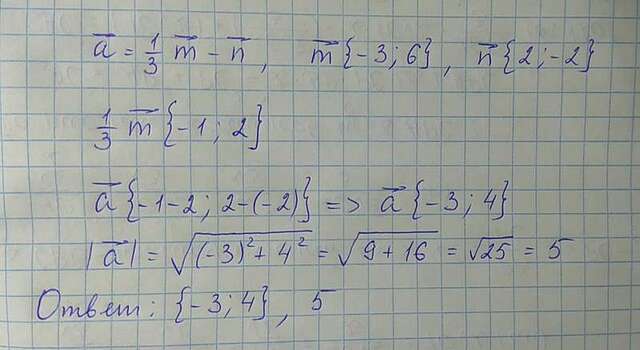 a⃗ = 1/3 m⃗ − n⃗, m⃗{−3; 6}, n⃗{2; −2}
1/3 m⃗{−1; 2}
a⃗{−1−2; 2−(−2)} => a⃗{−3; 4}
|a⃗| = √((−3)²+4²) = √(9+16) = √25 = 5
Ответ: {−3; 4}, 5